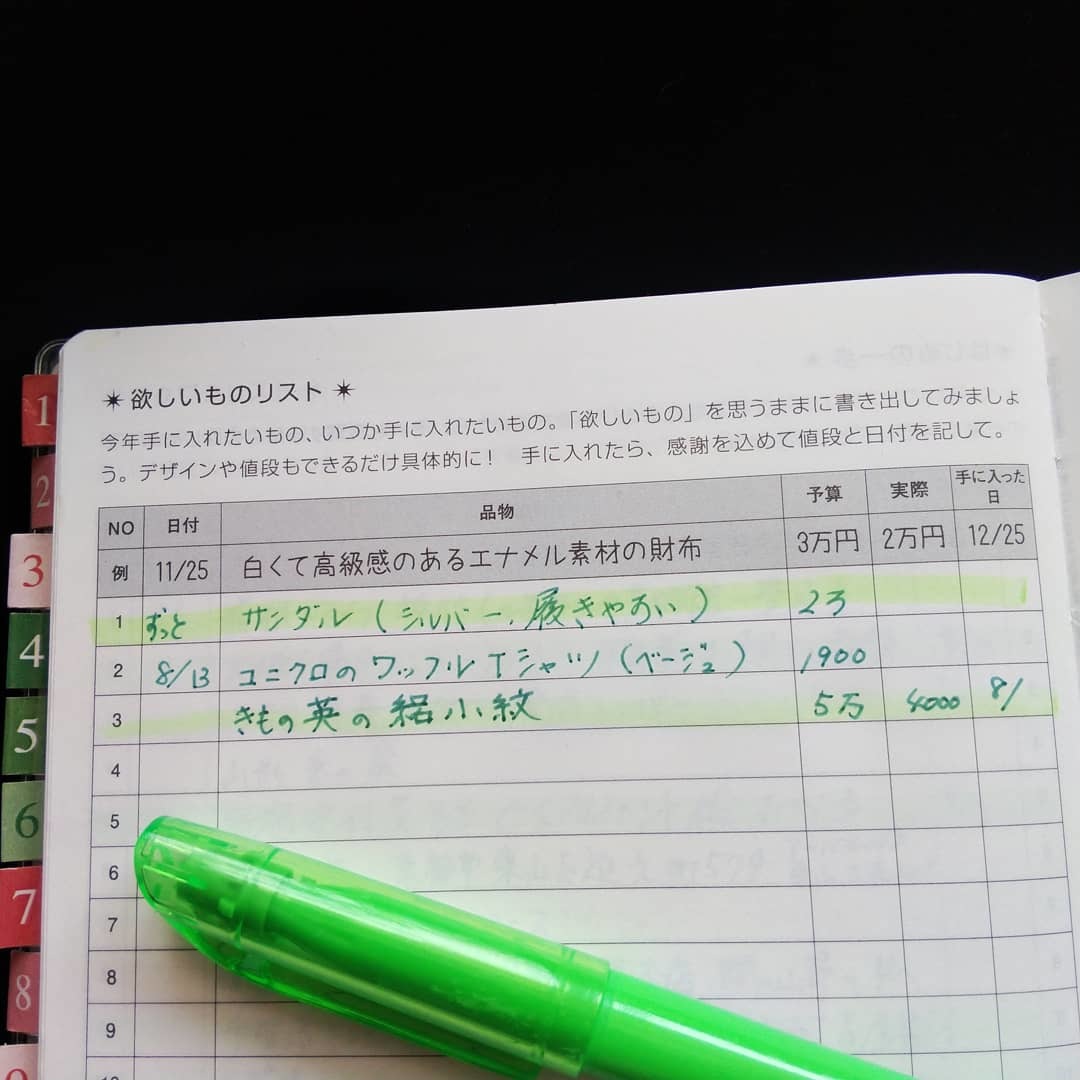 ✴ 欲しいものリスト ✴
今年手に入れたいもの、いつか手に入れたいもの。「欲しいもの」を思うままに書き出してみましょ
う。デザインや値段もできるだけ具体的に! 手に入れたら、感謝を込めて値段と日付を記して。
NO 日付 品物 予算 実際 手に入った日
例 11/25 白くて高級感のあるエナメル素材の財布 3万円 2万円 12/25
1 ずっと サンダル(シルバー、履きやすい) 2万
2 8/13 ユニクロのワッフルTシャツ(ベージュ) 1900
3 きもの英の絽小紋 5万 4000 8/
4
5
6
7
8
9
1
2
3
4
5
6
7
8